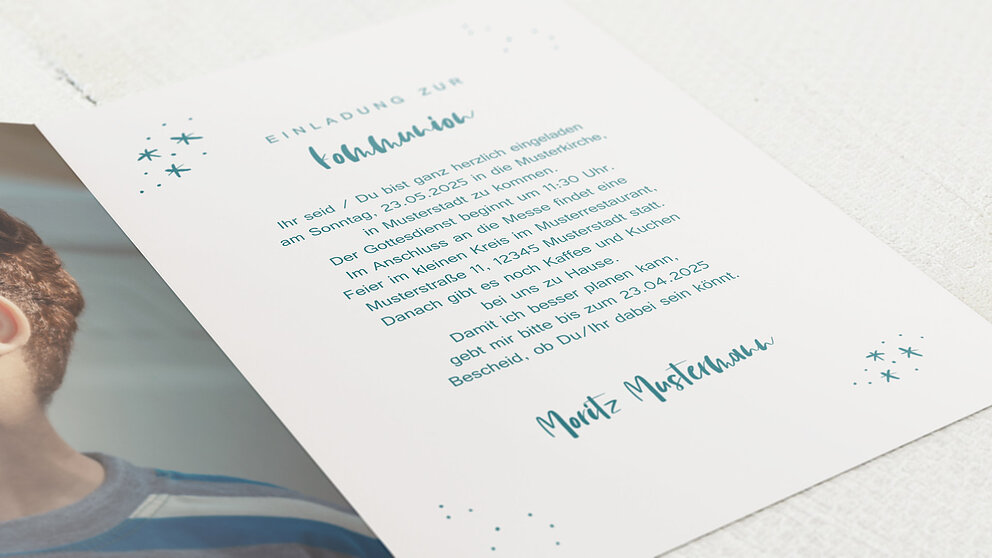 EINLADUNG ZUR
Kommunion
Ihr seid / Du bist ganz herzlich eingeladen
am Sonntag, 23.05.2025 in die Musterkirche,
in Musterstadt zu kommen.
Der Gottesdienst beginnt um 11:30 Uhr.
Im Anschluss an die Messe findet eine
Feier im kleinen Kreis im Musterrestaurant,
Musterstraße 11, 12345 Musterstadt statt.
Danach gibt es noch Kaffee und Kuchen
bei uns zu Hause.
Damit ich besser planen kann,
gebt mir bitte bis zum 23.04.2025
Bescheid, ob Du/Ihr dabei sein könnt.
Moritz Mustermann